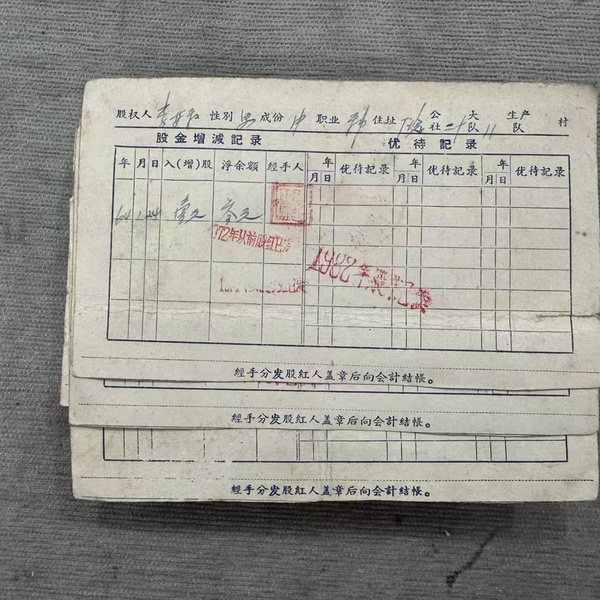 股权人 性別 男 成份 中 职业 住址 公社 大队 11 生产队 村
股金增减記录 优待記录
年 月 日 入(增)股 淨余額 經手人 年月日 优待記录 年月日 优待記录 年月日 优待記录
64 1 24 壹元 叁元
1972年从前股红已
1982年
經手分发股紅人盖章后向会計結帳。
經手分发股紅人盖章后向会計結帳。
經手分发股紅人盖章后向会計結帳。